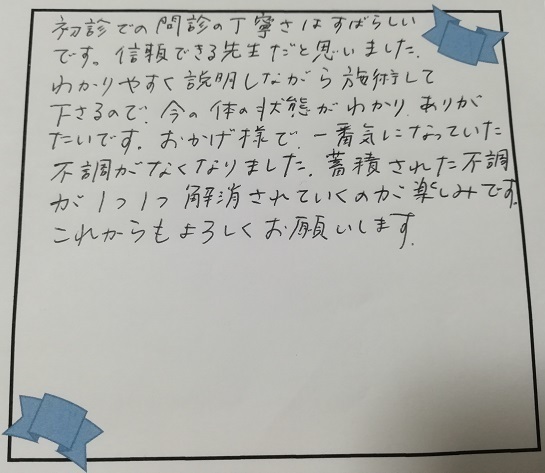 初診での問診の丁寧さはすばらしい
です。信頼できる先生だと思いました.
わかりやすく説明しながら施術して
下さるので、今の体の状態がわかり、ありが
たいです。おかげ様で、一番気になっていた
不調がなくなりました。蓄積された不調
が1つ1つ解消されていくのが楽しみです.
これからもよろしくお願いします.